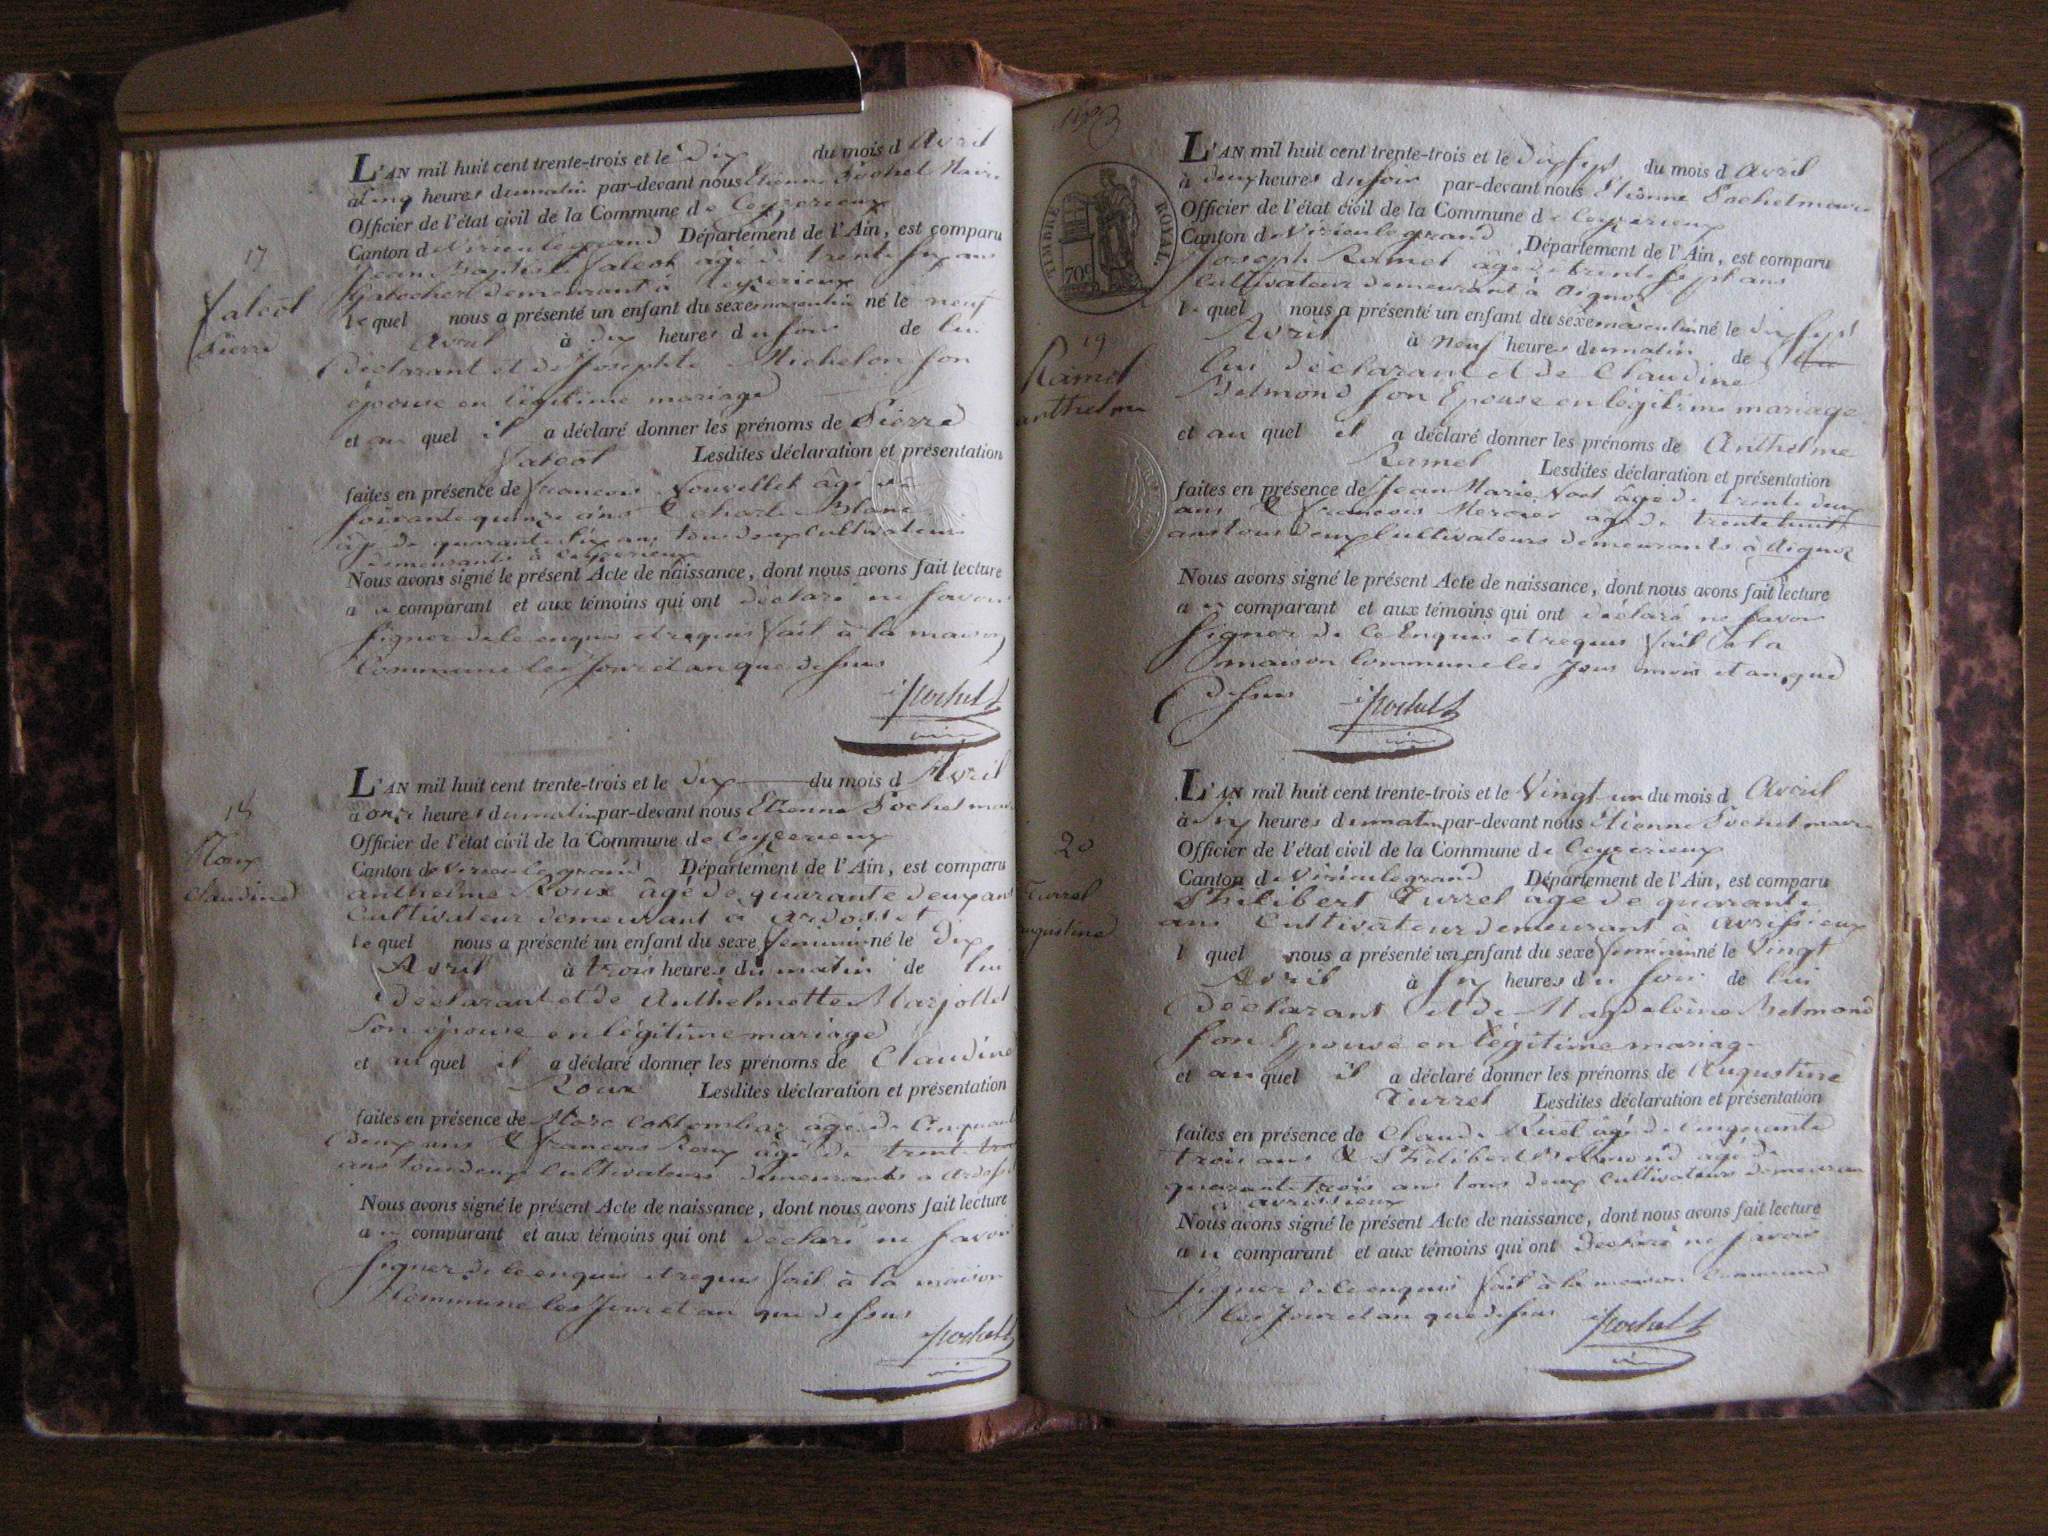 17
Falcot
Pierre
L'AN mil huit cent trente-trois et le dix du mois d Avril
à cinq heures du matin par-devant nous Etienne Pochet Maire
Officier de l'état civil de la Commune de Ceyzerieux
Canton de Virieulegrand Département de l'Ain, est comparu
Jean Baptiste Falcot agé de trente six ans
demeurant à Ceyzerieux
lequel nous a présenté un enfant du sexe masculin né le neuf
Avril à dix heures du soir de lui
Déclarant et de Josephte Michelon son
épouse en légitime mariage
et au quel il a déclaré donner les prénoms de Pierre
Falcot Lesdites déclaration et présentation
faites en présence de francois Bouvellet âgé de
soixante quinze ans & charle Blanc
âgé de quarante six ans tous deux Cultivateurs
demeurants à Ceyzerieux
Nous avons signé le présent Acte de naissance, dont nous avons fait lecture
au comparant et aux témoins qui ont déclaré ne savoir
signer de ce enquis et requis fait à la maison
Commune les Jour et an que dessus
Pochet
18
Roux
Claudine
L'AN mil huit cent trente-trois et le dix du mois d Avril
à onze heures du matin par-devant nous Etienne Pochet maire
Officier de l'état civil de la Commune de Ceyzerieux
Canton de Virieulegrand Département de l'Ain, est comparu
anthelme Roux âgé de quarante deux ans
Cultivateur demeurant à Ardosset
lequel nous a présenté un enfant du sexe féminin né le Dix
Avril à trois heures du matin de lui
déclarant et de Anthelmette Marjollet
Son épouse en légitime mariage
et au quel il a déclaré donner les prénoms de Claudine
Roux Lesdites déclaration et présentation
faites en présence de Cottombaz âgé de Cinquante
deux ans & francois Roux âgé de trente trois
ans tous deux Cultivateurs demeurants a
Nous avons signé le présent Acte de naissance, dont nous avons fait lecture
au comparant et aux témoins qui ont déclaré ne savoir
signer de ce enquis et requis fait à la maison
Commune les Jour et an que dessus
Pochet
TIMBRE ROYAL.
709
19
Ramel
anthelme
L'AN mil huit cent trente-trois et le dix sept du mois d Avril
à deux heures du soir par-devant nous Etienne Pochet maire
Officier de l'état civil de la Commune de Ceyzerieux
Canton de Virieulegrand Département de l'Ain, est comparu
Joseph Ramel âgé de trente sept ans
Cultivateur demeurant à Aignoz
lequel nous a présenté un enfant du sexe masculin né le dix sept
Avril à neuf heures du matin de
lui déclarant et de Claudine
Belmond son Epouse en légitime mariage
et au quel il a déclaré donner les prénoms de Anthelme
Ramel Lesdites déclaration et présentation
faites en présence de Jean Marie âgé de trente deux
ans & francois Mercier âgé de trente huit
ans tous deux Cultivateurs demeurants à Aignoz
Nous avons signé le présent Acte de naissance, dont nous avons fait lecture
au comparant et aux témoins qui ont déclaré ne savoir
signer de Ce Enquis et requis fait à la
maison Commune les Jour mois et an que
dessus Pochet
20
Turrel
augustine
L'AN mil huit cent trente-trois et le Vingt un du mois d Avril
à six heures du matin par-devant nous Etienne Pochet maire
Officier de l'état civil de la Commune de Ceyzerieux
Canton de Virieulegrand Département de l'Ain, est comparu
Philibert Turrel age de quarante
ans Cultivateur demeurant à avrissieux
l quel nous a présenté un enfant du sexe féminin né le Vingt
Avril à six heures du soir de lui
Déclarant et de Magdeleine Belmond
son Epouse en légitime mariage
et au quel il a déclaré donner les prénoms de Augustine
Turrel Lesdites déclaration et présentation
faites en présence de Claude âgé de Cinquante
trois ans & Philibert Belmond âgé de
quarante trois ans tous deux Cultivateurs demeurans
à avrissieux
Nous avons signé le présent Acte de naissance, dont nous avons fait lecture
au comparant et aux témoins qui ont déclaré ne savoir
signer de Ce enquis fait à la maison Commune
les Jour et an que dessus Pochet